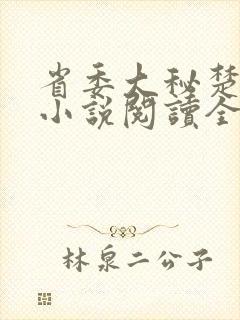 省委大秘楚
小說閱讀全
林泉二公子